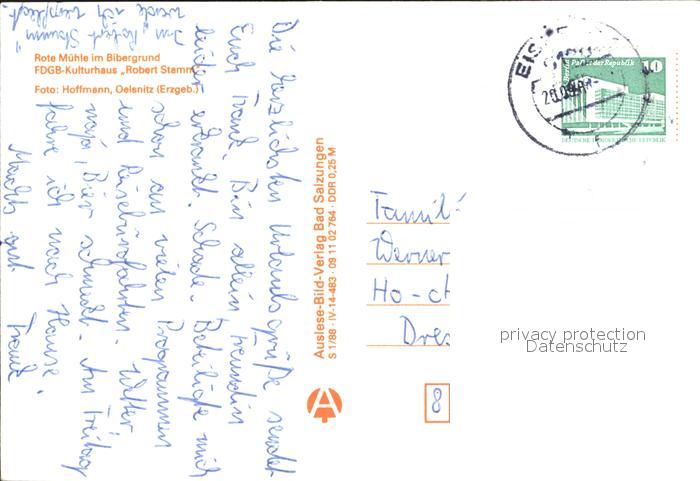 Rote Mühle im Bibergrund
FDGB-Kulturhaus „Robert Stamm"
Foto: Hoffmann, Oelsnitz (Erzgeb.)
Die herzlichsten Urlaubsgrüße sendet
Euch Traudl. Bin allein, Freundin
leider erkrankt. Schade. Beteilige mich
schon an vielen Programmen
und Reisebürofahrten. Wetter,
naja, Bier schmeckt. Am Freitag
fahre ich nach Hause.
Machts gut
Im "Robert Stamm"
werde ich verpflegt.
Auslese-Bild-Verlag Bad Salzungen
S 1/88 · IV-14-483 · 09 11 02 764 · DDR 0,25 M
A
EIS
Berlin, Palast der Republik
10
DEUTSCHE DEMOKRATISCHE REPUBLIK
Famil
Werner
Ho-ch
Dres
8
privacy protection
Datenschutz